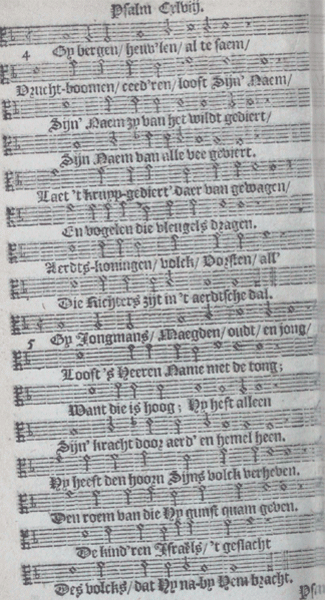 Psalm Cxlviij.
4 Gy bergen/ heuv'len/ al te saem/
Vrucht-boomen/ ceed'ren/ looft Sijn' Naem/
Sijn' Naem zy van het wildt gediert/
Sijn Naem van alle vee geviert.
Laet 't kruyp-gediert' daer van gewagen/
En vogelen die vleugels dragen.
Aerdts-koningen/ volck/ Vorsten/ all'
Die Richters zijt in 't aerdtsche dal.
5 Gy Jongmans/ Maegden/ oudt/ en jong/
Looft 's Heeren Name met de tong;
Want die is hoog; Hy heft alleen
Sijn' kracht door aerd' en hemel heen.
Hy heeft den hoorn Sijns volck verheven.
Den roem van die Hy gunst quam geven.
De kind'ren Israëls/ 't geslacht
Des volcks/ dat Hy na-by Hem bracht.
Psa-